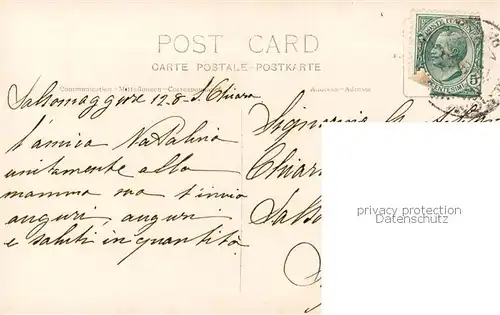 POST CARD
CARTE POSTALE-POSTKARTE
Communication-Mitteilungen-Correspondence
Address-Adresse
POSTE ITALIANE
CENTESIMI 5
Salsomaggiore 12.8. S. Chiara
L'amica Natalina
unitamente alla
mamma sua t'invia
auguri, auguri
e saluti in quantità
Signorina
Chiar
Salso
privacy protection
DATENSCHUTZ